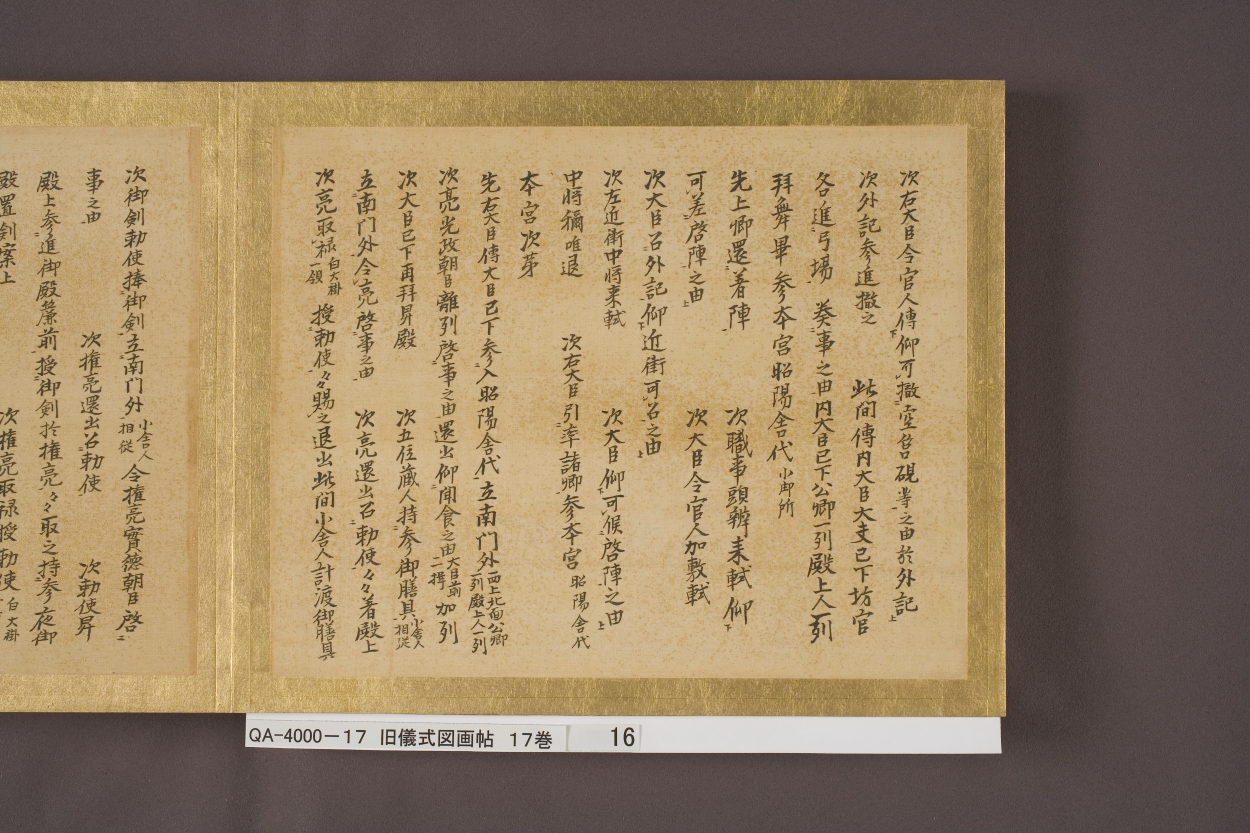 次右大臣令官人傳仰可撤筥硯等之由於外記
次外記参進撤之　此間傳内大臣大夫已下坊官
各進弓場　奏事之由内大臣已下公卿一列殿上人一列
拜舞畢参本宮昭陽舎代小御所
先上卿還着陣　次職事頭辨来軾仰下
可差啓陣之由上　次大臣令官人加敷軾
次大臣召外記仰下近衛可召之由上
次左近衛中将来軾　次大臣仰下可候啓陣之由上
中将稱唯退　次右大臣引率諸卿参本宮昭陽舎代
本宮次第
先右大臣傳大臣已下参入昭陽舎代立南门外西上北面公卿一列殿上人一列
次亮光政朝臣離列啓事之由還出仰聞食之由大臣前二揖加列
次大臣已下再拜昇殿　次五位蔵人持参御膳具小舎人相従
立南门外令亮啓事之由　次亮還出召勅使々々着殿上
次亮取禄白大褂一領　授勅使々々賜之退出此間小舎人計渡御膳具
次御剣勅使捧御剣立南门外小舎人相従　令権亮實德朝臣啓
事之由　次権亮還出召勅使　次勅使昇
殿上参進御殿簾前授御剣於権亮々々取之持参夜御
殿置剣案上　次権亮取禄授勅使白大褂
QA-4000-17 旧儀式図画帖 17巻 16